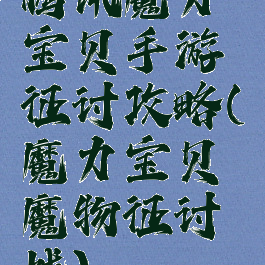 腾讯魔力
宝贝手游
征讨攻略(
魔力宝贝
魔物征讨
战)